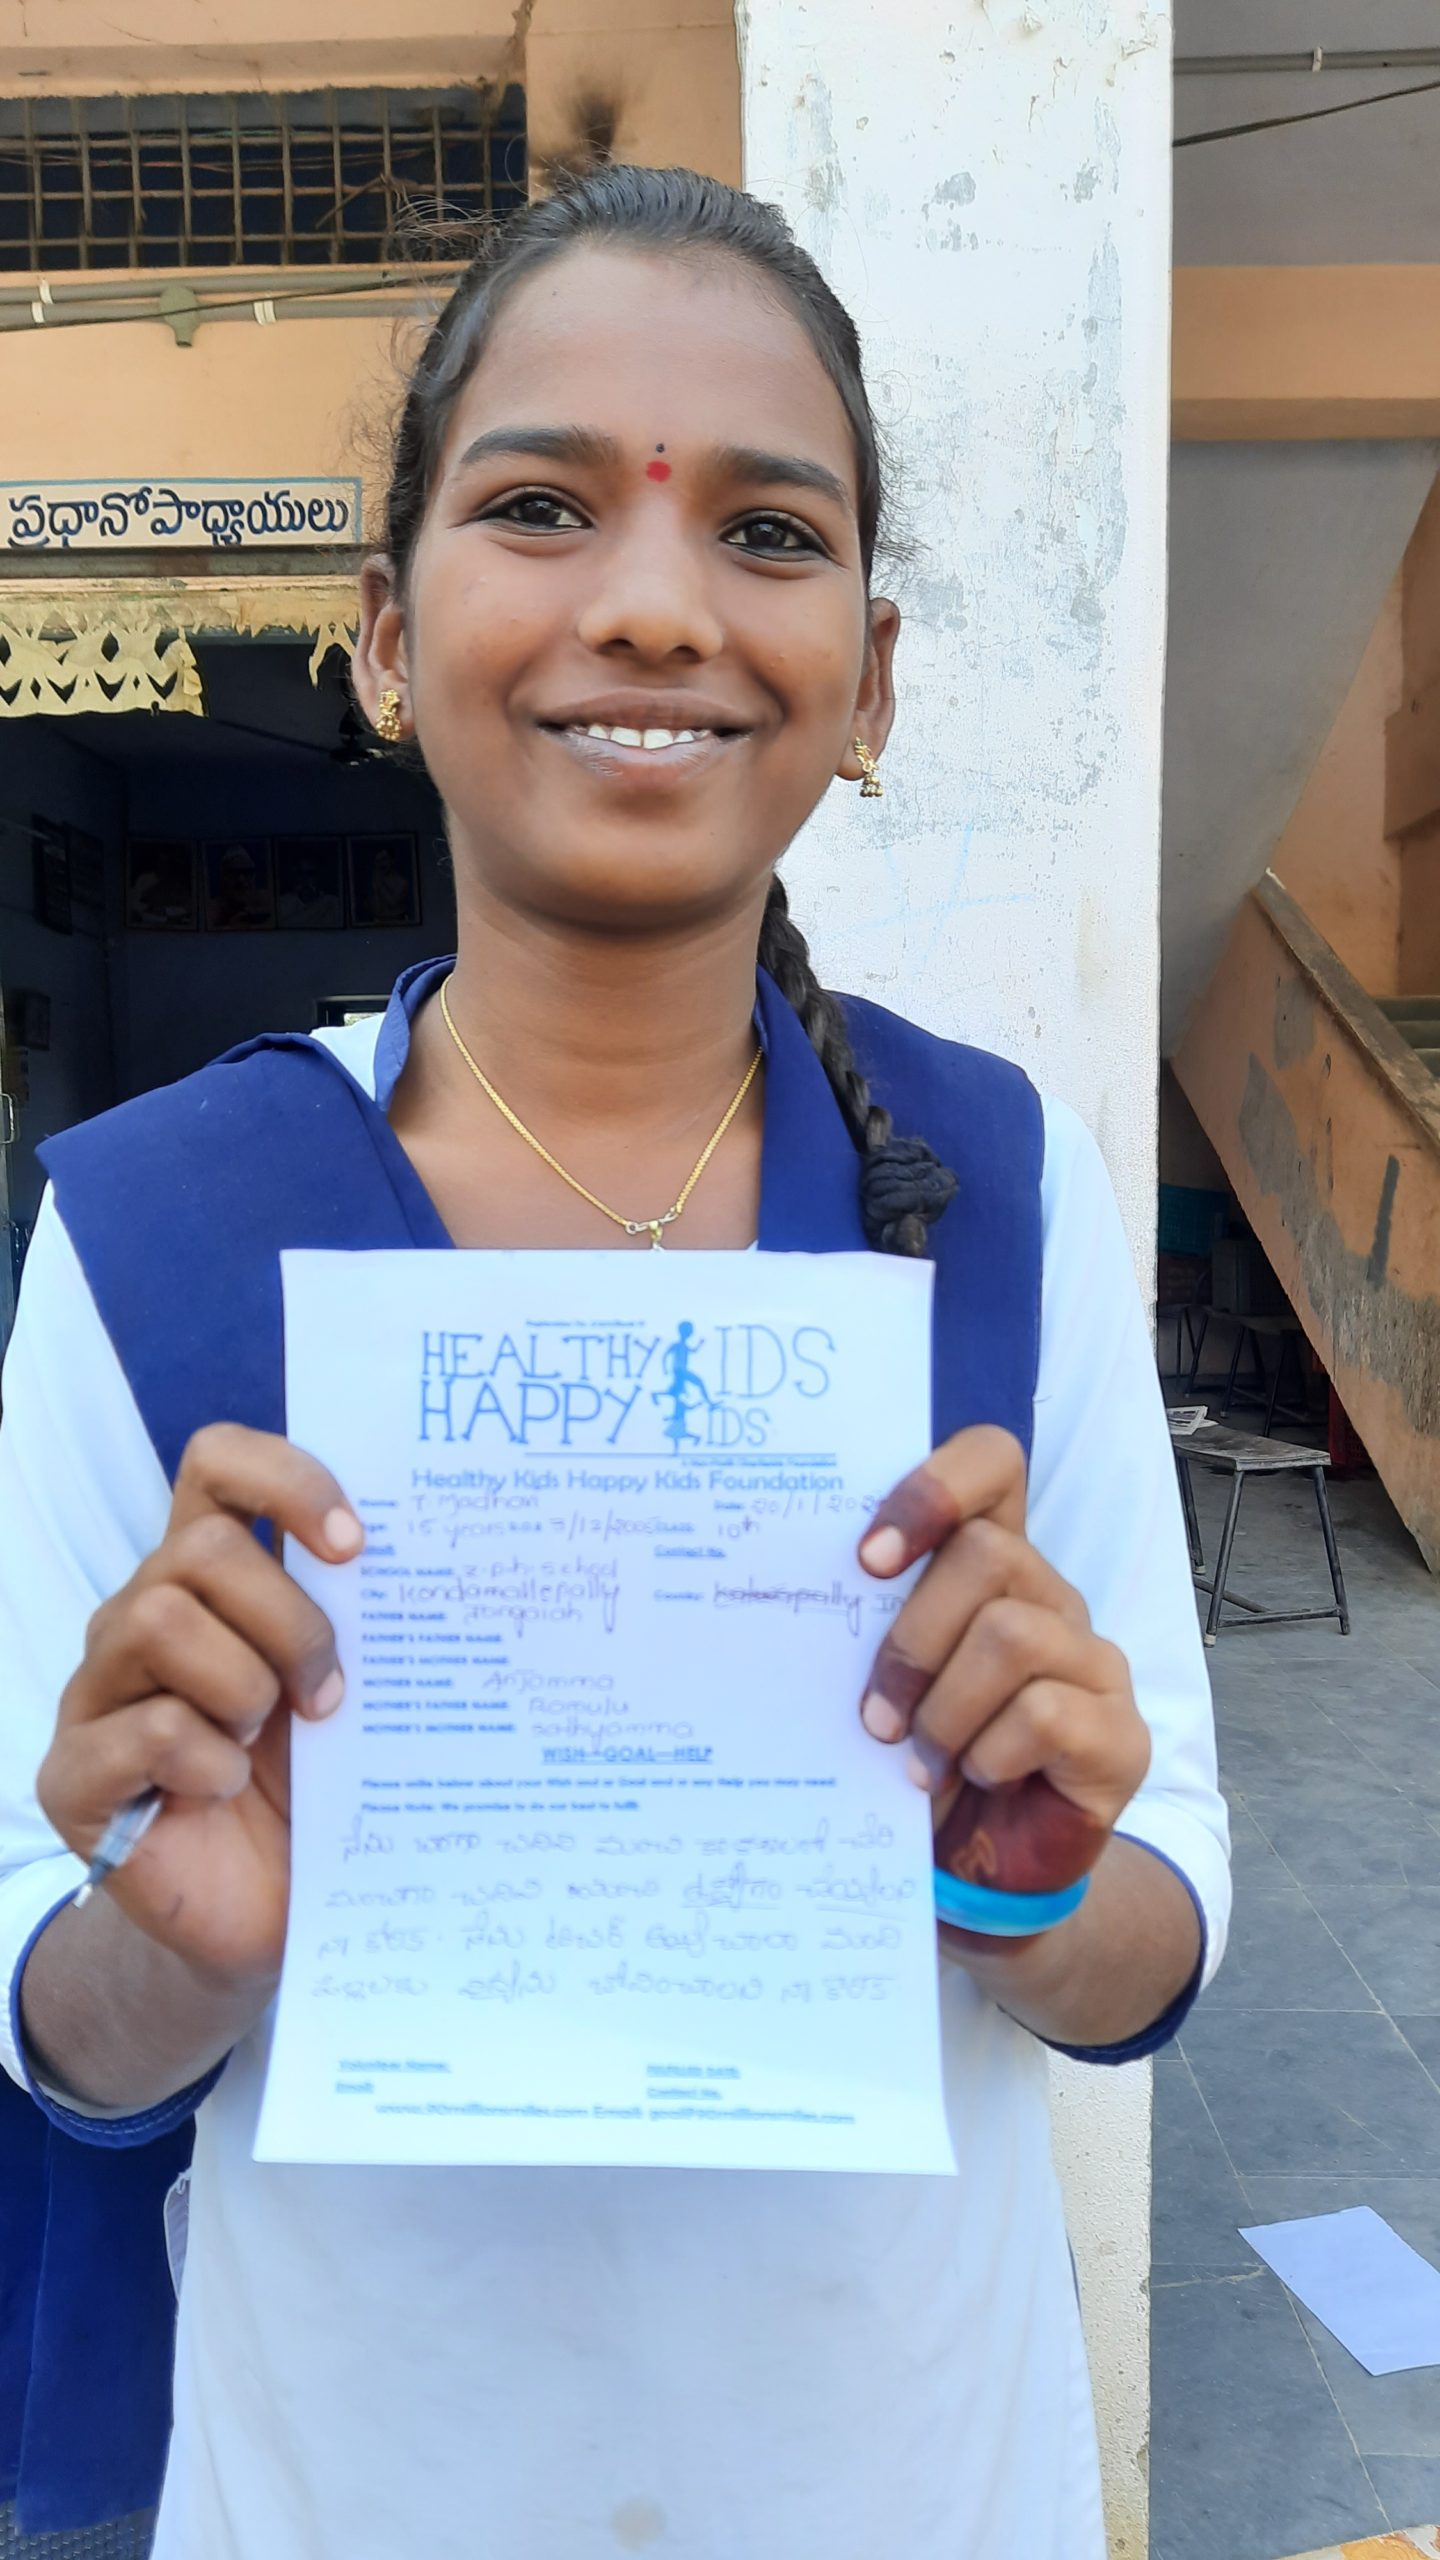 ప్రధానోపాధ్యాయులు
HEALTHY KIDS
HAPPY KIDS
Healthy Kids Happy Kids Foundation
Name: T Madhavi Date: 20/1/202
Age: 15 years D.O.B 7/12/2005 Class 10th
Email: Contact No.
SCHOOL NAME: Z.P.H. School
City: Kondamallepally Country: In
FATHER NAME: Jangaiah
FATHER'S FATHER NAME:
FATHER'S MOTHER NAME:
MOTHER NAME: Anjamma
MOTHER'S FATHER NAME: Ramulu
MOTHER'S MOTHER NAME: Sathyamma
WISH—GOAL—HELP
Please write below about your Wish and or Goal and or any Help you may need
Please Note: We promise to do our best to fulfill
నేను బాగా చదివి మంచి కాలేజీలో చేరి
మంచిగా చదివి మంచి ఉద్యోగం చేయ్యాలని
నా కోరిక. నేను టీచర్ అయ్యి చాలా మంది
పిల్లలకు విద్యను బోధించాలని నా కోరిక.
Volunteer Name: FULFILLED DATE:
Email: Contact No.
www.90millionsmiles.com Email: goal@90millionsmiles.com